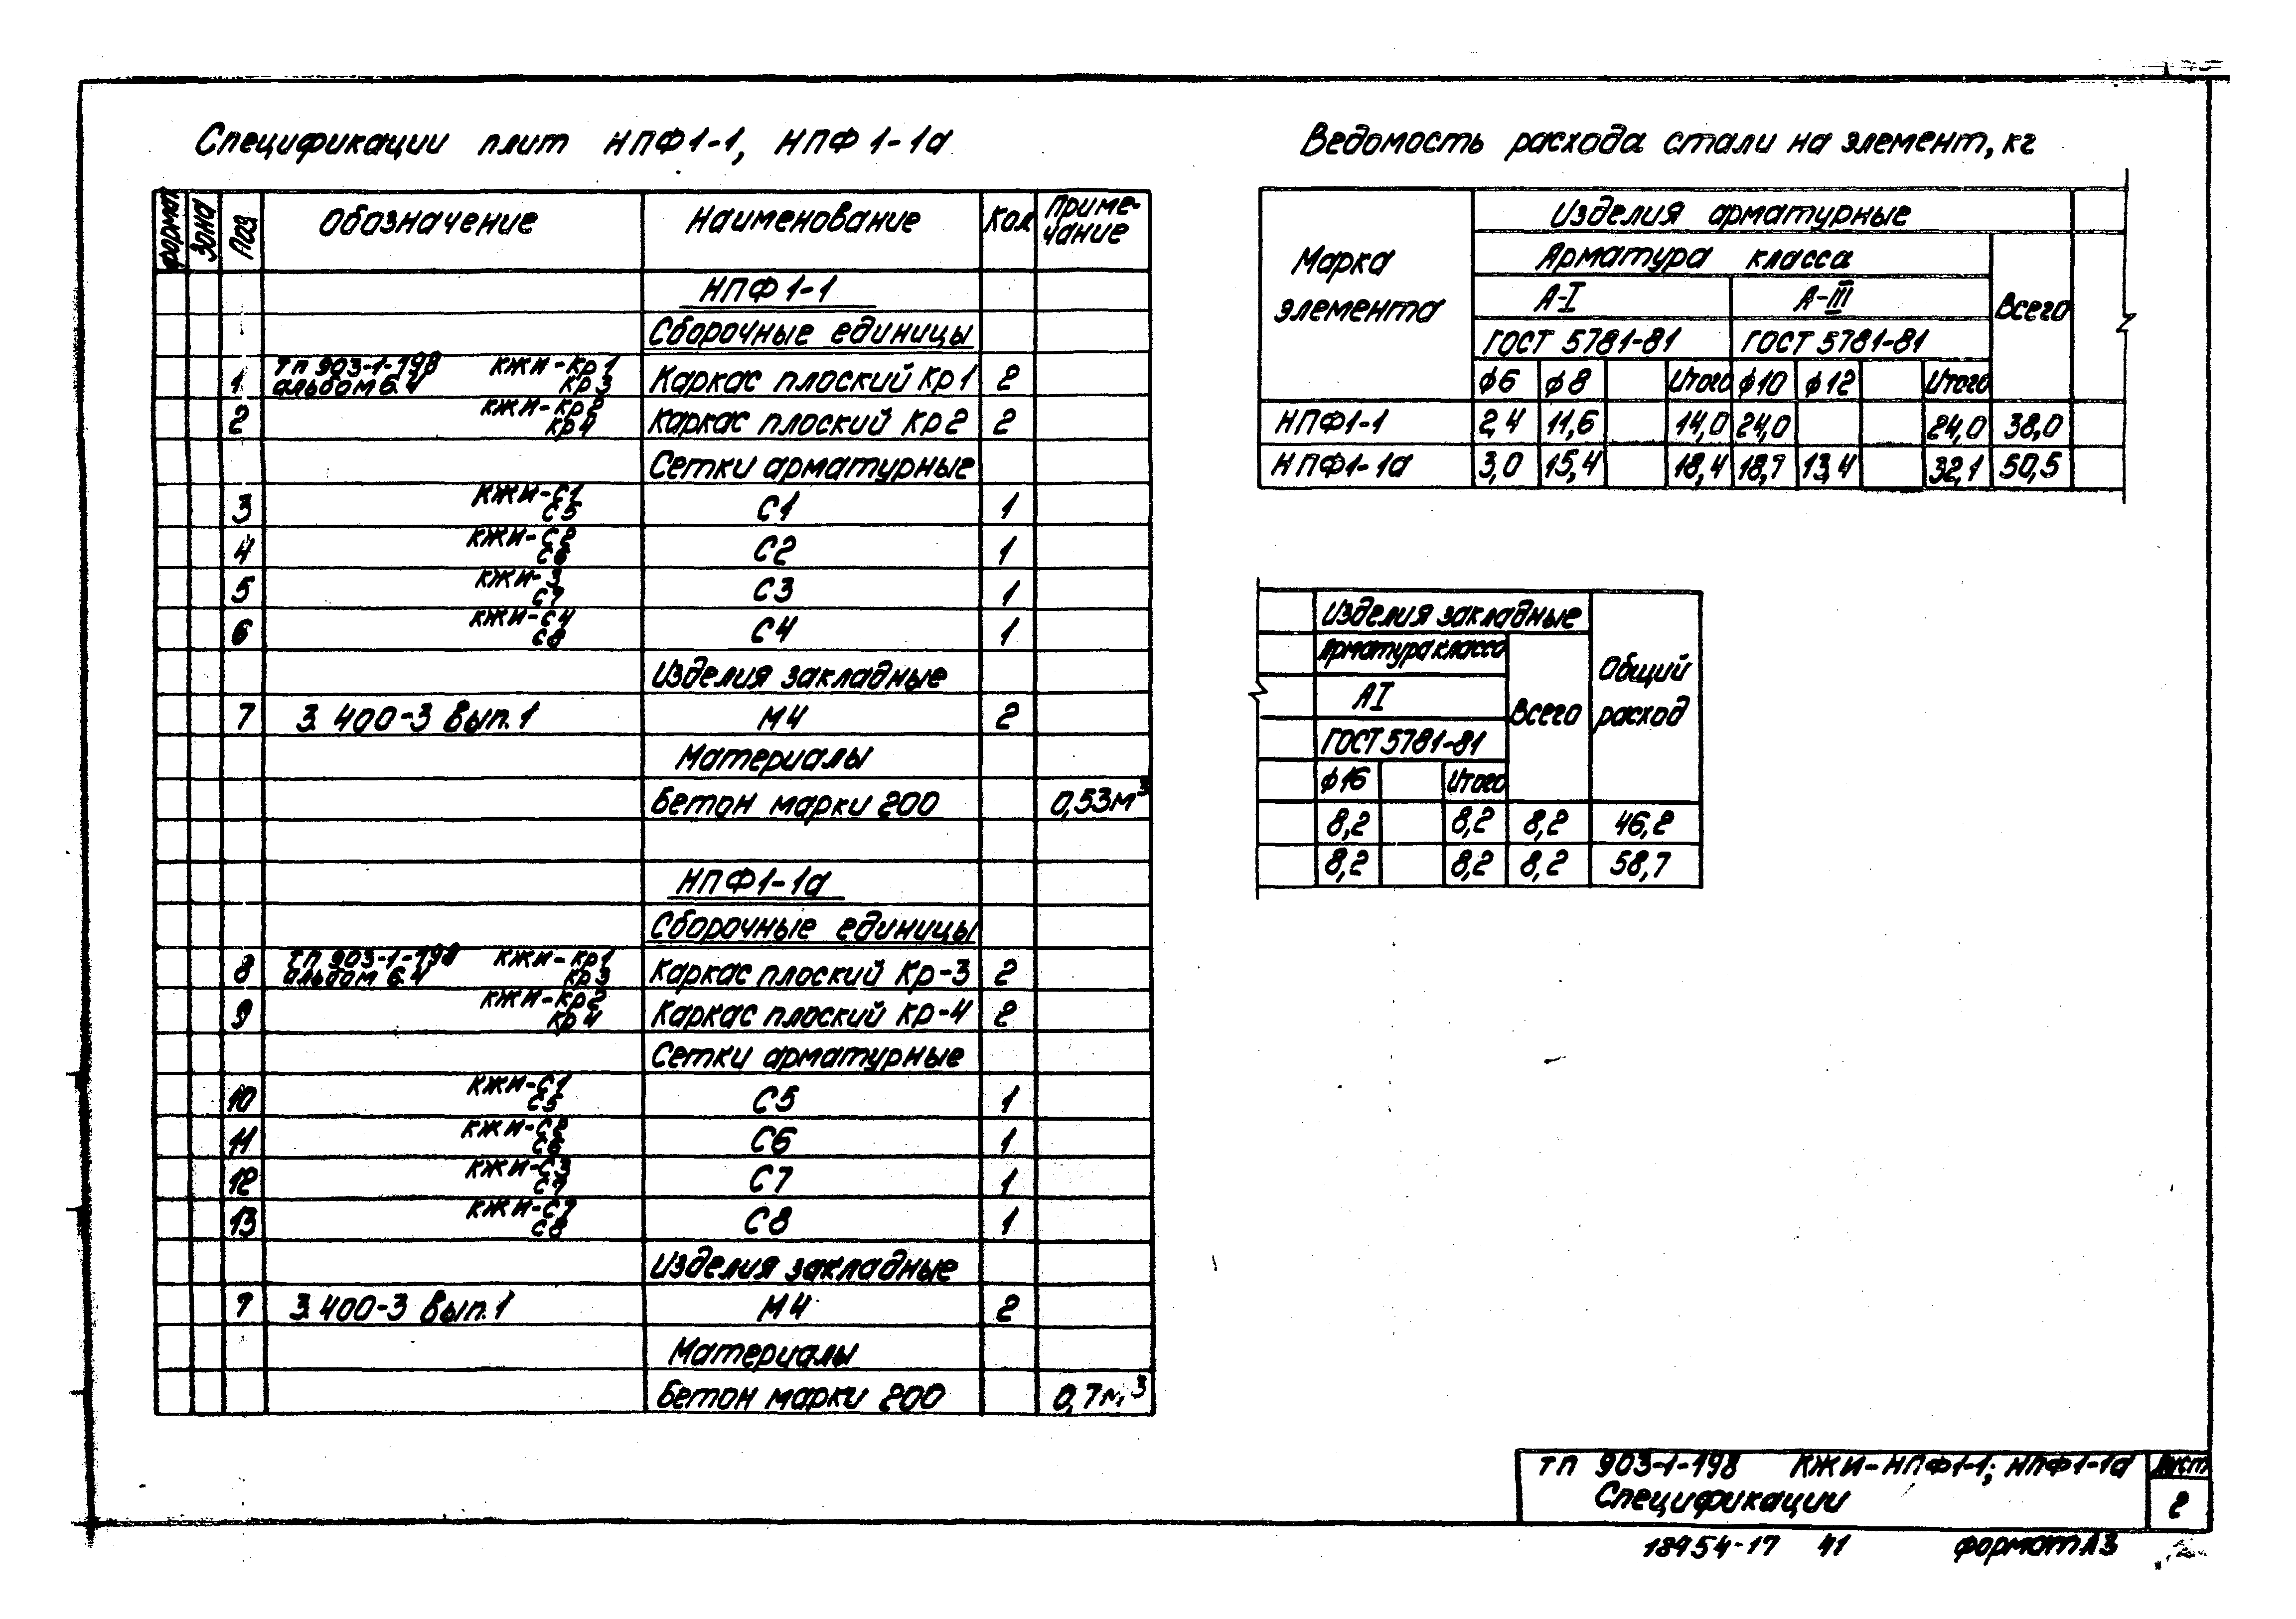 Спецификации плит НПФ1-1, НПФ1-1а
Формат Зона Поз Обозначение Наименование Кол Приме-
чание
НПФ1-1
Сборочные единицы
1 ТП 903-1-198 КЖИ-Кр1 Каркас плоский Кр1 2
альбом 6.4 Кр3
2 КЖИ-Кр2 Каркас плоский Кр2 2
Кр4
Сетки арматурные
3 КЖИ-С1 С1 1
С5
4 КЖИ-С2 С2 1
С6
5 КЖИ-3 С3 1
С7
6 КЖИ-С4 С4 1
С8
Изделия закладные
7 3.400-3 Вып.1 М4 2
Материалы
Бетон марки 200 0,53м³
НПФ1-1а
Сборочные единицы
8 ТП 903-1-198 КЖИ-Кр1 Каркас плоский Кр-3 2
альбом 6.4 Кр3
9 КЖИ-Кр2 Каркас плоский Кр-4 2
Кр4
Сетки арматурные
10 КЖИ-С1 С5 1
С5
11 КЖИ-С2 С6 1
С6
12 КЖИ-С3 С7 1
С7
13 С8 1
С8
Изделия закладные
7 3.400-3 Вып.1 М4 2
Материалы
Бетон марки 200 0,7м³
Ведомость расхода стали на элемент, кг
Марка
элемента
Изделия арматурные
Арматура класса
Всего
А-I А-III
ГОСТ 5781-81 ГОСТ 5781-81
ф6 ф8 Итого ф10 ф12 Итого
НПФ1-1 2,4 11,6 14,0 24,0 24,0 38,0
НПФ1-1а 3,0 15,4 18,4 18,7 13,4 32,1 50,5
Изделия закладные
Арматура класса
Всего
Общий
расход
АI
ГОСТ 5781-81
ф16 Итого
8,2 8,2 8,2 46,2
8,2 8,2 8,2 58,7
ТП 903-1-198 КЖИ-НПФ1-1; НПФ1-1а Лист
Спецификации 2
18954-17 41 Формат А3